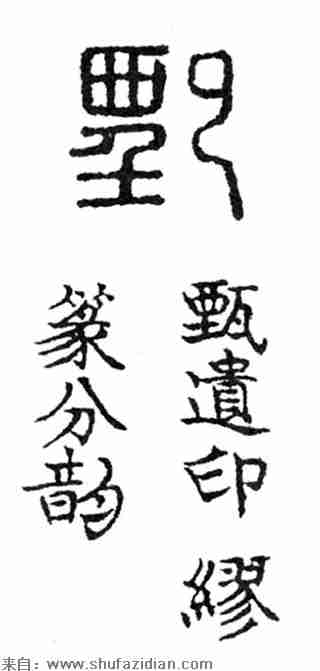 甄
甄遺印 繆
篆分韵
来自：www.shufazidian.com